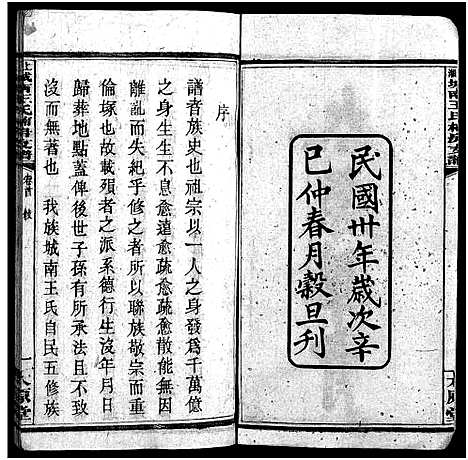 民國卅年歲次辛
巳仲春月穀旦刊
太原堂
序
譜者族史也祖宗以一人之身發爲千萬億
之身生生不息愈遠愈疏愈疏愈散不無因
離亂而失紀乎修之者所以聯族敦宗而重
倫塚也故載殞者之派系德行生沒年月日
歸葬地點蓋俾後世子孫有所承法且不致
沒而無著也　我族城南王氏自民五修族
卷首